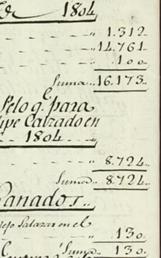 de 1804
1.312
14.761
100
Suma 16.173
Pelo q. para
Calzado en
1804
8.724
Suma 8.724
Ganador
Salazar en el
130
Suma 130